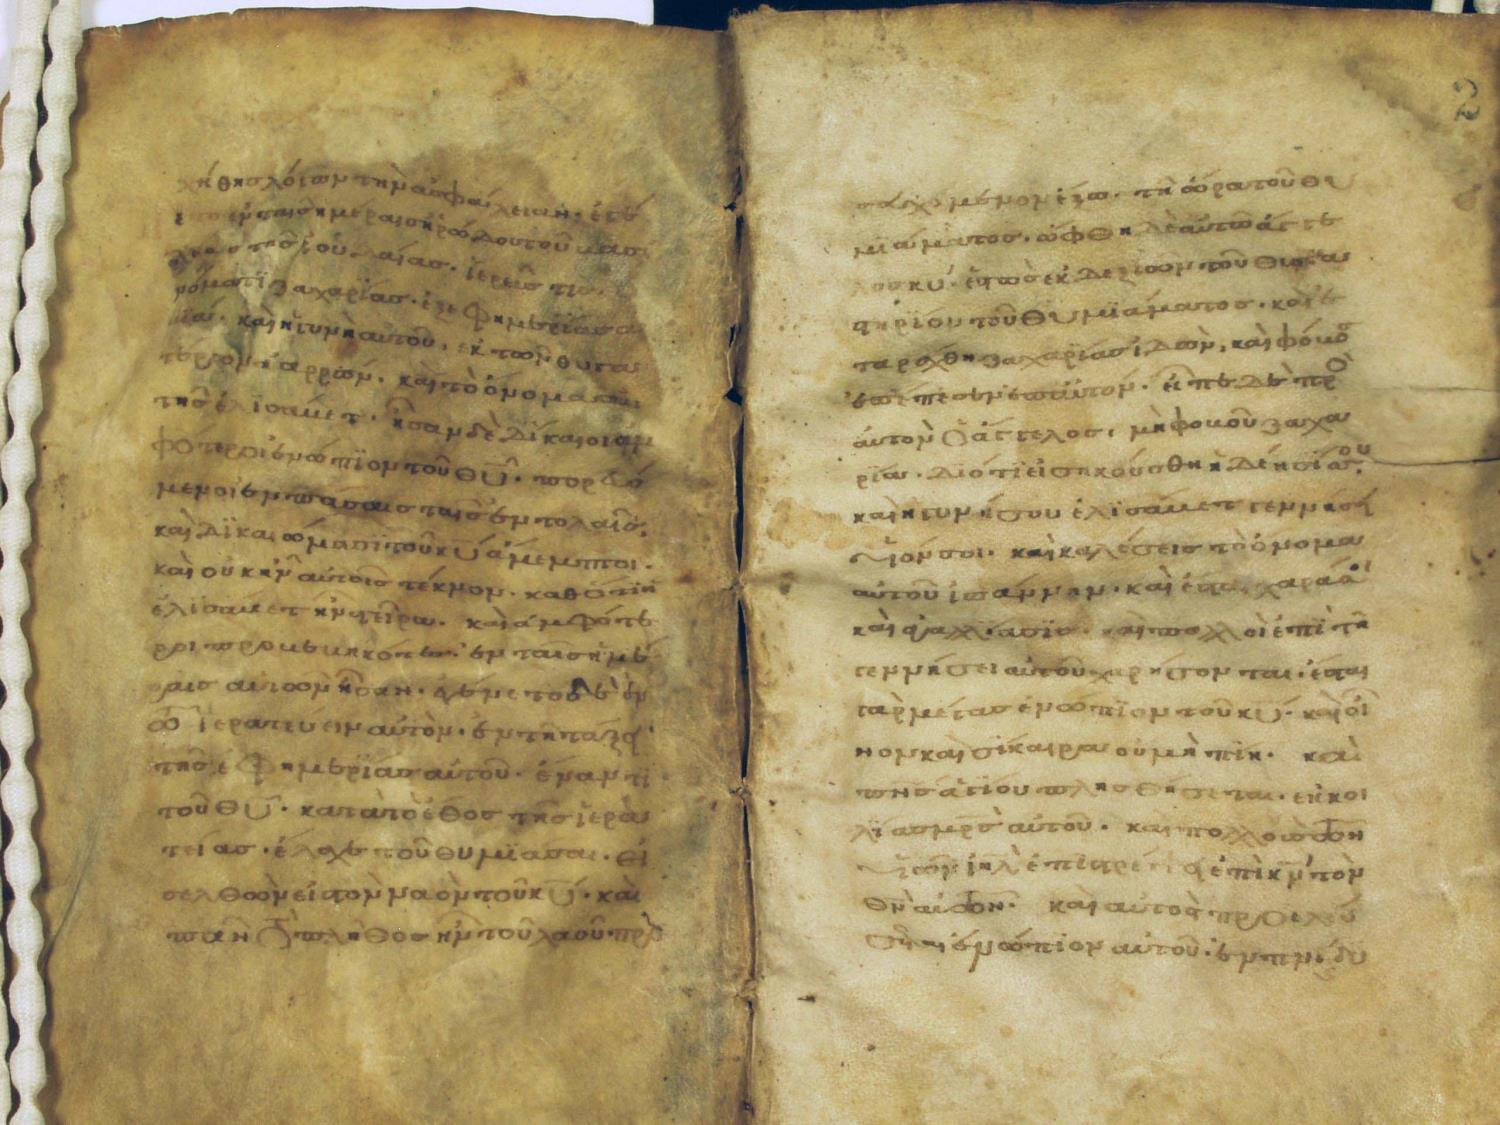 χήθης λόγων τὴν ἀσφάλειαν· ἐγέ
ετο ἐν ταῖς ἡμέραις ἡρώδου τοῦ βασι
λέως τῆς ἰουδαίας· ἱερεύς τις·
ὀνόματι ζαχαρίας· ἐξ ἐφημερίας ἀ
ϊά· καὶ ἡ γυνὴ αὐτοῦ, ἐκ τῶν θυγα
τέρων ἀαρρών· καὶ τὸ ὄνομα αὐ
τῆς ἐλισάβετ· ἦσαν δὲ δίκαιοι ἀμ
φότεροι ἐνώπιον τοῦ θῡ· πορευό
μενοι ἐν πάσαις ταῖς ἐντολαῖς,
καὶ δικαιώμασι τοῦ κῡ ἄμεμπτοι·
καὶ οὐκ ἦν αὐτοῖς τέκνον· καθότι ἡ
ἐλισάβετ ἦν στεῖρα· καὶ ἀμφότε
ροι προβεβηκότες ἐν ταῖς ἡμέ
ραις αὐτῶν ἦσαν· ἐγένετο δὲ ἐν
τῶ ἱερατεύειν αὐτὸν· ἐν τῆ τάξει
τῆς ἐφημερίας αὐτοῦ· ἔναντι
τοῦ θῡ· κατὰ τὸ ἔθος τῆς ἱερα
τείας· ἔλαχε τοῦ θυμιάσαι· εἰ
σελθὼν εἰς τὸν ναὸν τοῦ κῡ· καὶ
πᾶν τὸ πλῆθος ἦν τοῦ λαοῦ προ
σευχόμενον ἔξω· τῆ ὥρα τοῦ θυ
μιάματος· ὤφθη δὲ αὐτῶ ἄγγε
λος κῡ· ἑστὼς ἐκ δεξιῶν τοῦ θυσια
στηρίου τοῦ θυμιάματος· καὶ ἐ
ταράχθη ζαχαρίας ἰδών, καὶ φόβο
ἐπέπεσεν ἐπ' αὐτόν· εἶπε δὲ πρὸ
αὐτὸν ὁ ἄγγελος, μὴ φοβοῦ ζαχα
ρία· διότι εἰσηκούσθη ἡ δέησίς σου,
καὶ ἡ γυνή σου ἐλισάβετ γεννήσει
υἱόν σοι· καὶ καλέσεις τὸ ὄνομα
αὐτοῦ ἰωάννην· καὶ ἔσται χαρά σοι
καὶ ἀγαλλίασις· καὶ πολλοὶ ἐπὶ τῆ
γεννήσει αὐτοῦ χαρήσονται· ἔσται
γὰρ μέγας ἐνώπιον τοῦ κῡ· καὶ οἶ
νον καὶ σίκαιρα οὐ μὴ πίη· καὶ
πνς ἁγίου πλησθήσεται· ἐκ κοι
λίας μρς αὐτοῦ· καὶ πολλοὺς τῶν
υἱῶν ιηλ ἐπιστρέψει ἐπὶ κν τὸν
θν αὐτῶν· καὶ αὐτὸς προελεύ
σεται ἐνώπιον αὐτοῦ· ἐν πνι